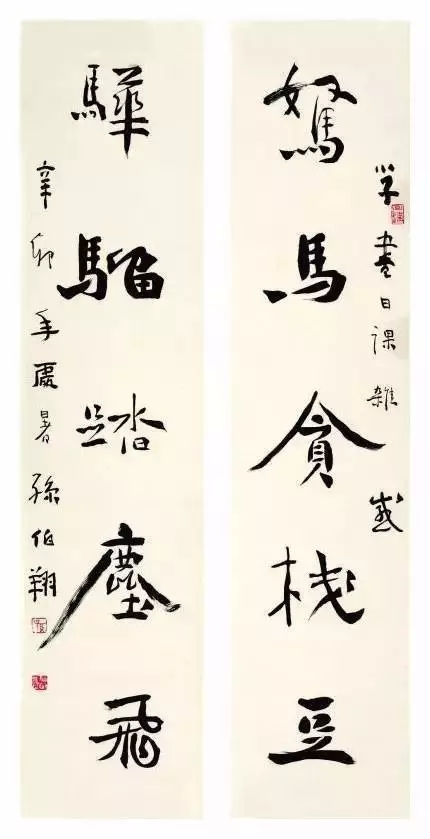 學書日課雜感
駑馬貪棧豆
驊騮踏塵飛
辛卯年處暑孫伯翔